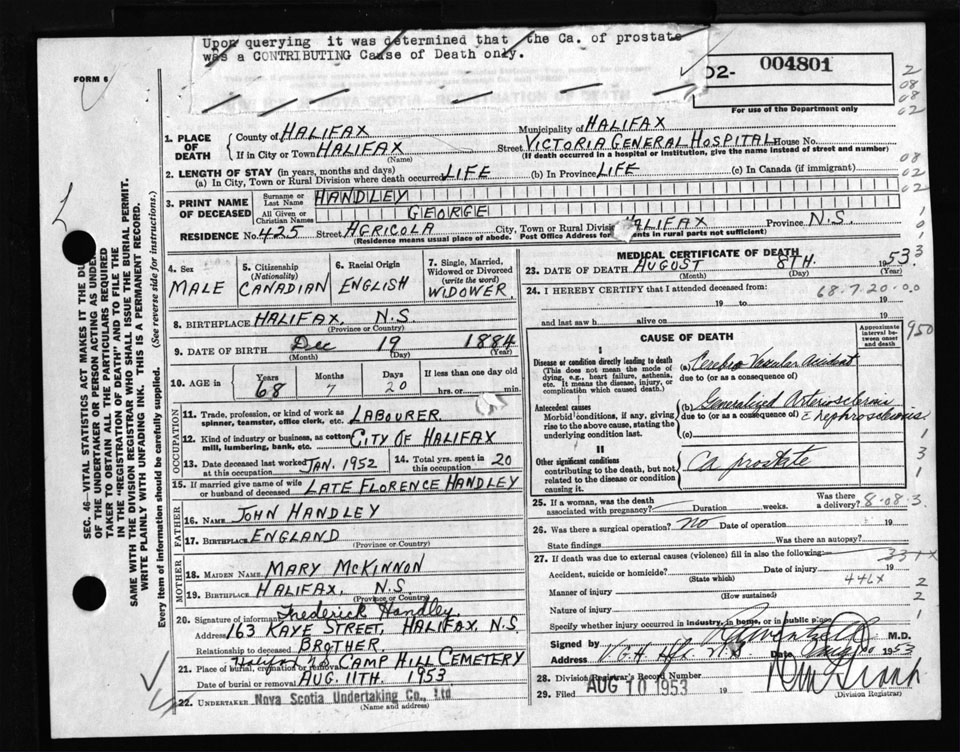 Upon querying it was determined that the Ca. of prostate
was a CONTRIBUTING Cause of Death only.
FORM 6
02- 004801
For use of the Department only
2
08
08
02
1. PLACE OF DEATH
County of HALIFAX Municipality of HALIFAX
If in City or Town HALIFAX Street VICTORIA GENERAL HOSPITAL House No.
(Name) (If death occurred in a hospital or institution, give the name instead of street and number)
2. LENGTH OF STAY (in years, months and days)
(a) In City, Town or Rural Division where death occurred LIFE (b) In Province LIFE (c) In Canada (if immigrant)
08
02
02
3. PRINT NAME OF DECEASED
Surname or Last Name HANDLEY
All Given or Christian Names GEORGE
RESIDENCE No. 425 Street AGRICOLA City, Town or Rural Divisio HALIFAX Province N.S.
(Residence means usual place of abode. Post Office Address for ents in rural parts not sufficient)
4. Sex
MALE
5. Citizenship (Nationality)
CANADIAN
6. Racial Origin
ENGLISH
7. Single, Married, Widowed or Divorced (write the word)
WIDOWER
8. BIRTHPLACE HALIFAX, N.S.
(Province or Country)
9. DATE OF BIRTH Dec 19 1884
(Month) (Day) (Year)
10. AGE in
Years Months Days If less than one day old
68 7 20 hrs. or min.
OCCUPATION
11. Trade, profession, or kind of work as spinner, teamster, office clerk, etc. LABOURER
12. Kind of industry or business, as cotton mill, lumbering, bank, etc. CITY OF HALIFAX
13. Date deceased last worked at this occupation JAN. 1952
14. Total yrs. spent in this occupation 20
15. If married give name of wife or husband of deceased LATE FLORENCE HANDLEY
FATHER
16. NAME JOHN HANDLEY
17. BIRTHPLACE ENGLAND
(Province or Country)
MOTHER
18. MAIDEN NAME MARY MCKINNON
19. BIRTHPLACE HALIFAX, N.S.
(Province or Country)
20. Signature of informant Frederick Handley.
Address 163 KAYE STREET, HALIFAX, N.S.
Relationship to deceased BROTHER.
21. Place of burial, cremation or removal Halifax N.S. CAMP HILL CEMETERY
Date of burial or removal AUG. 11TH. 1953
22. UNDERTAKER Nova Scotia Undertaking Co., Ltd
(Name and address)
MEDICAL CERTIFICATE OF DEATH
23. DATE OF DEATH AUGUST 8TH. 1953
(Month) (Day) (Year)
24. I HEREBY CERTIFY that I attended deceased from:
68.7.20.0.0
19 to 19
and last saw h alive on 19
CAUSE OF DEATH
Approximate interval between onset and death
950
I
Disease or condition directly leading to death
(This does not mean the mode of dying, e.g., heart failure, asthenia, etc. It means the disease, injury, or complication which caused death.)
(a) Cerebro Vascular Accident
due to (or as a consequence of)
Antecedent causes
Morbid conditions, if any, giving rise to the above cause, stating the underlying condition last.
(b) Generalized Arteriosclerosis
due to (or as a consequence of) c̄ Nephrosclerosis
(c)
II
Other significant conditions
contributing to the death, but not related to the disease or condition causing it.
Ca prostate
25. If a woman, was the death associated with pregnancy? Duration weeks. Was there a delivery?
8.08.3
26. Was there a surgical operation? NO Date of operation 19
State findings Was there an autopsy?
27. If death was due to external causes (violence) fill in also the following:
331x
Accident, suicide or homicide? Date of injury 19
(State which)
446x
Manner of injury
(How sustained)
Nature of injury
Specify whether injury occurred in industry, in home, or in public place
Signed by M.D.
Address V.G.H. Hfx. N.S. Date Aug 10 1953
28. Division Registrar's Record Number
29. Filed AUG 10 1953 19
(Division Registrar)
SEC. 46—VITAL STATISTICS ACT MAKES IT THE DU
OF THE UNDERTAKER OR PERSON ACTING AS UNDER
TAKER TO OBTAIN ALL THE PARTICULARS REQUIRED
IN THE "REGISTRATION OF DEATH" AND TO FILE THE
SAME WITH THE DIVISION REGISTRAR WHO SHALL ISSUE THE BURIAL PERMIT.
WRITE PLAINLY WITH UNFADING INK. THIS IS A PERMANENT RECORD.
Every item of information should be carefully supplied. (See reverse side for instructions.)